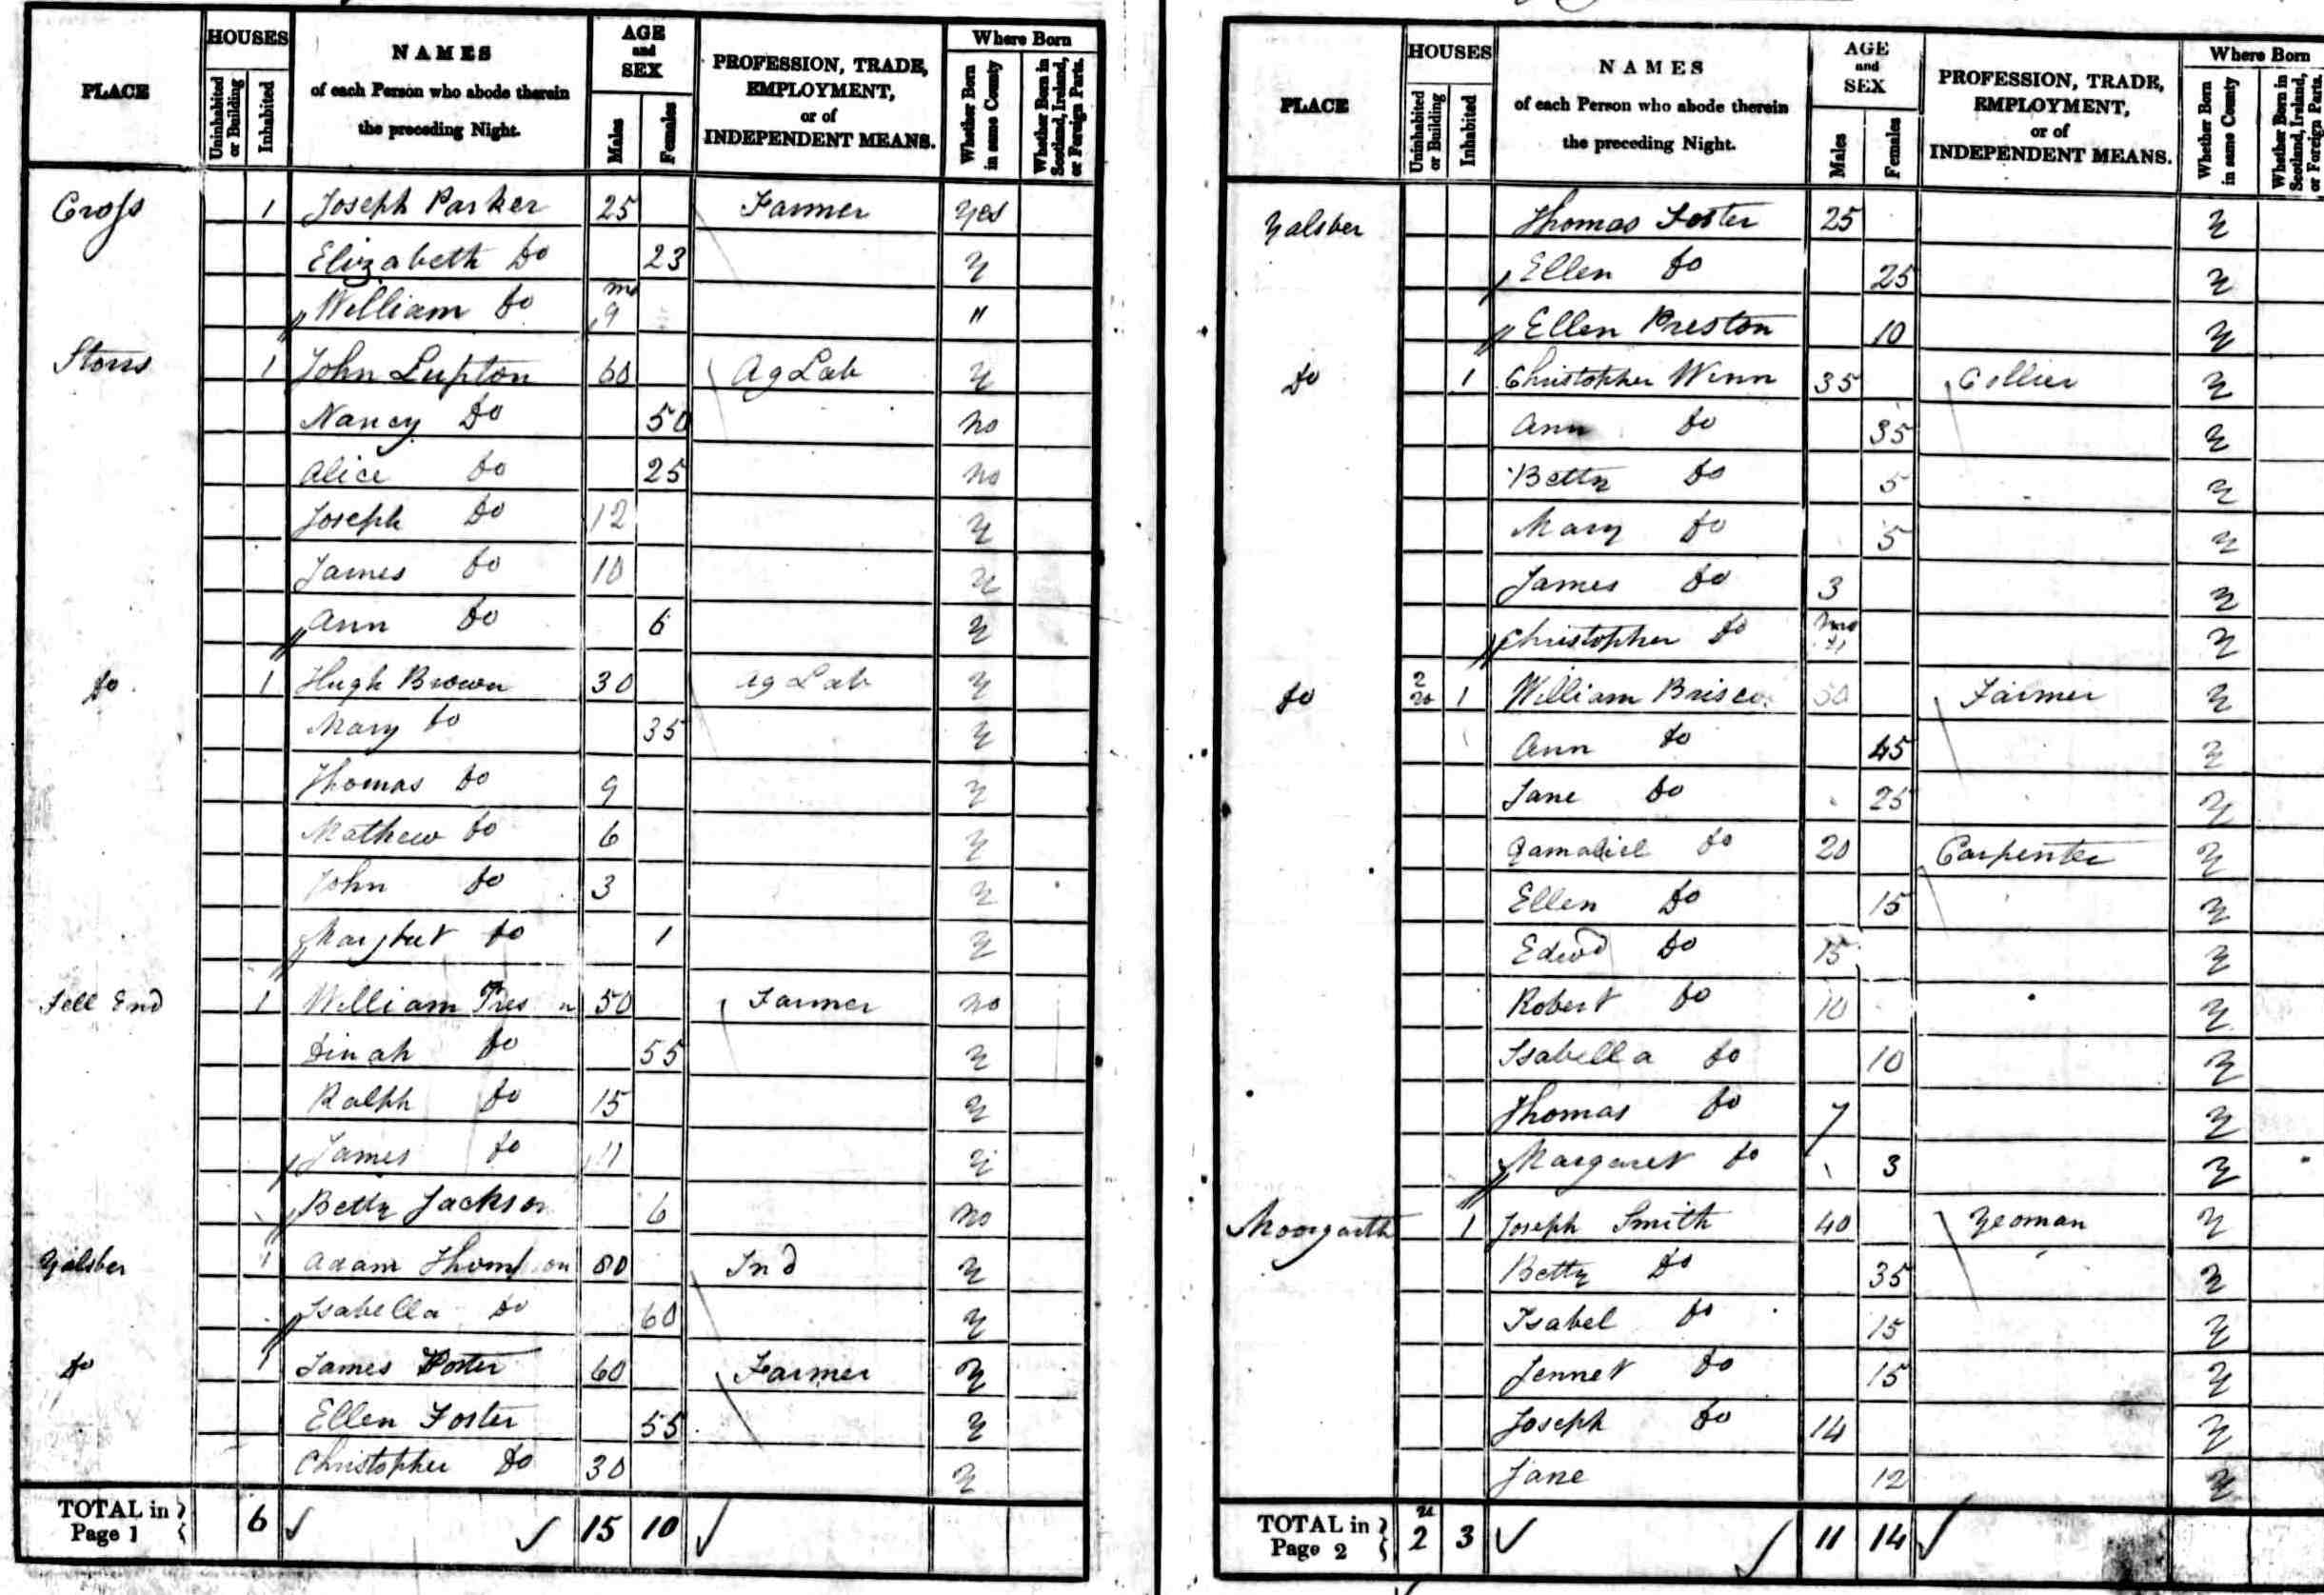 PLACE HOUSES Uninhabited or Building Inhabited NAMES of each Person who abode therein the preceding Night. AGE and SEX Males Females PROFESSION, TRADE, EMPLOYMENT, or of INDEPENDENT MEANS. Where Born Whether Born in same County Whether Born in Scotland, Ireland, or Foreign Parts.
Cross 1 Joseph Parker 25 Farmer Yes
Elizabeth Do 23 Y
William Do mo 9 "
Storrs 1 John Lupton 60 Ag Lab Y
Nancy Do 50 No
Alice Do 25 No
Joseph Do 12 Y
James Do 10 Y
Ann Do 6 Y
Do 1 Hugh Brown 30 Ag Lab Y
Mary Do 35 Y
Thomas Do 9 Y
Mathew Do 6 Y
John Do 3 Y
Do 1 Y
Fell End 1 William 50 Farmer No
Dinah Do 55 Y
Ralph Do 15 Y
James Do 11 Y
Betty Jackson 6 No
Yalsber 1 Adam Thompson 80 Ind Y
Isabella Do 60 Y
Do 1 James Foster 60 Farmer Y
Ellen Foster 55 Y
Christopher Do 30 Y
TOTAL in Page 1 6 15 10
PLACE HOUSES Uninhabited or Building Inhabited NAMES of each Person who abode therein the preceding Night. AGE and SEX Males Females PROFESSION, TRADE, EMPLOYMENT, or of INDEPENDENT MEANS. Where Born Whether Born in same County Whether Born in Scotland, Ireland, or Foreign Parts.
Yalsber Thomas Foster 25 Y
Ellen Do 25 Y
Ellen Preston 10 Y
Do 1 Christopher Winn 35 Collier Y
Ann Do 35 Y
Betty Do 5 Y
Mary Do 5 Y
James Do 3 Y
Christopher Do mo Y
Do 2 1 William Brisco 50 Farmer Y
Ann Do 45 Y
Jane Do 25 Y
Gamaliel Do 20 Carpenter Y
Ellen Do 15 Y
Edwd Do 15 Y
Robert Do 10 Y
Isabella Do 10 Y
Thomas Do 7 Y
Margaret Do 3 Y
Moorgarth 1 Joseph Smith 40 Yeoman Y
Betty Do 35 Y
Isabel Do 15 Y
Jennet Do 15 Y
Joseph Do 14 Y
Jane 12 Y
TOTAL in Page 2 2 3 11 14